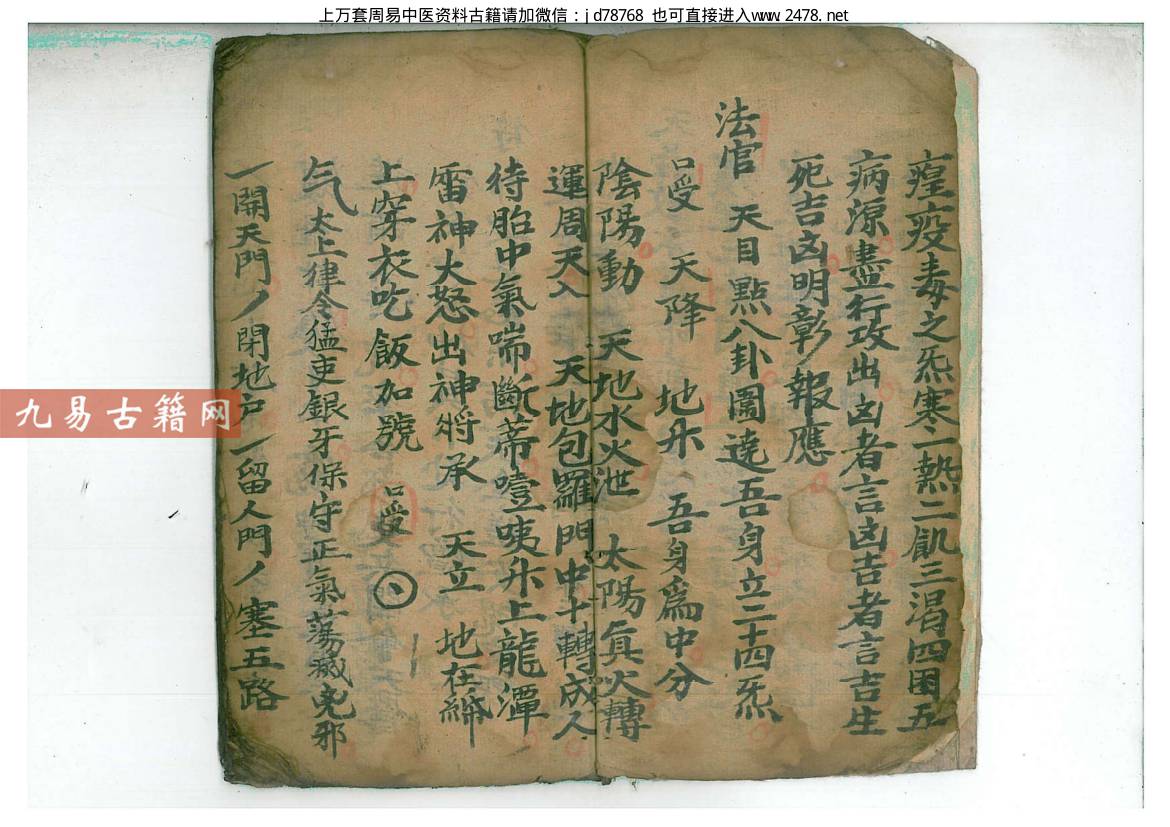 上万套周易中医资料古籍请加微信：jd78768 也可直接进入www.2478.net
瘟疫毒之炁寒一熱二飢三渴四困五
病源盡行攻出凶者言凶吉者言吉生
死吉凶明彰報應
法官 天目點八卦圖遶吾身立二十四炁
口受 天降 地升 吾身爲中分
陰陽動 天地水火泄 太陽真火轉
運周天入 天地包羅門中十轉成人
待胎中氣喘斷蒂噎咦升上龍潭
雷神大怒出神將承 天立 地在
上穿衣吃飯加號 口受
气 太上律令猛吏銀牙保守正氣蕩滅鬼邪
一開天門丿閉地户一留人門丿塞五路
九易古籍网